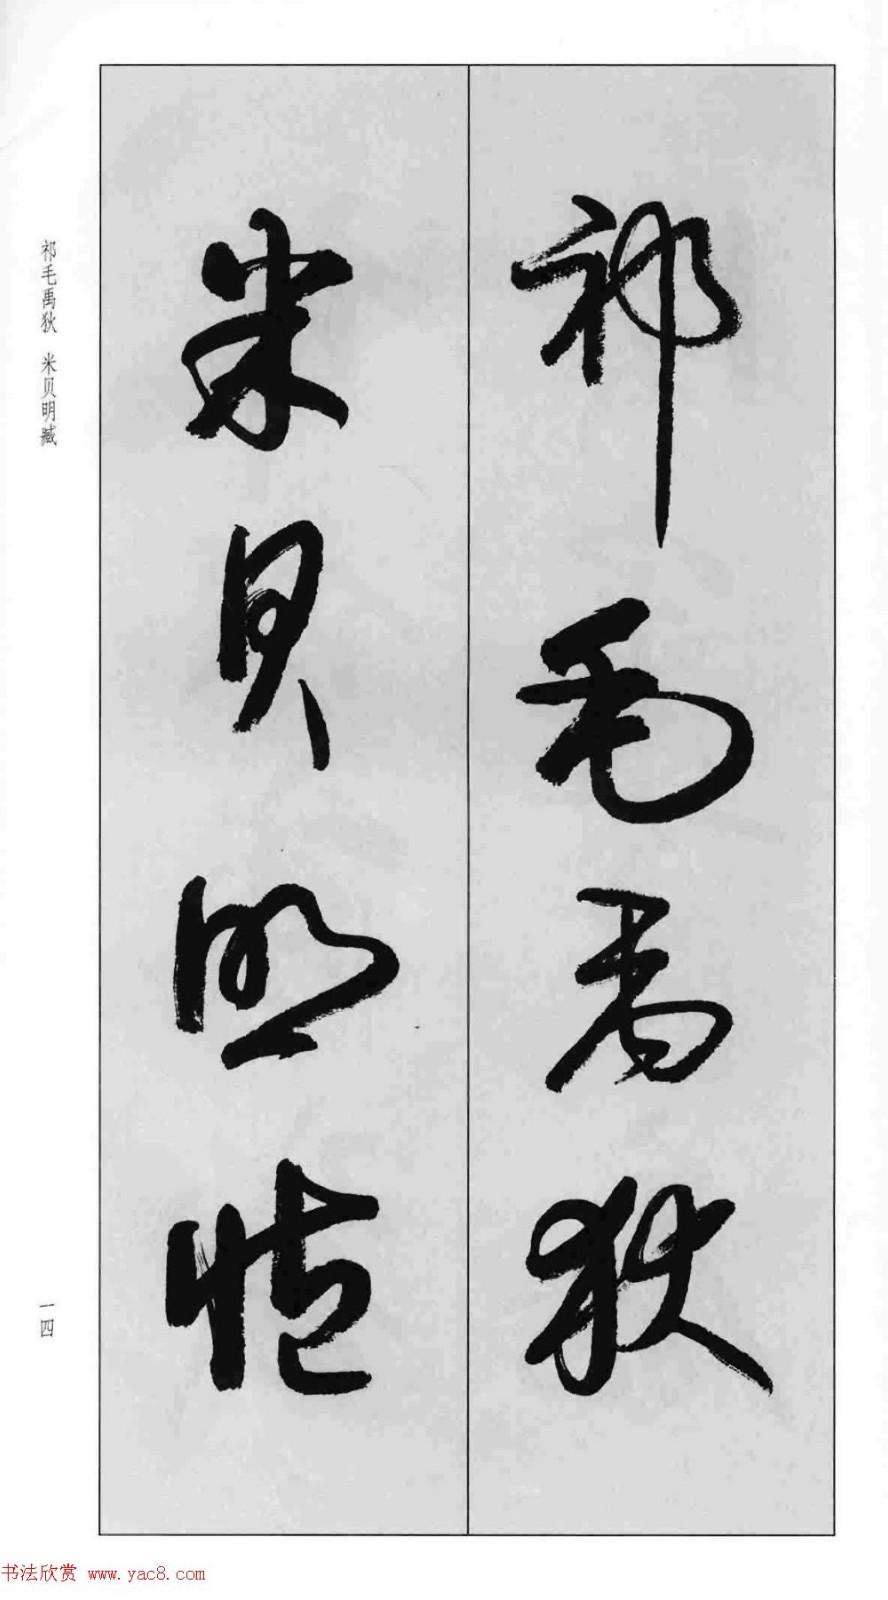 祁毛禹狄
米貝明臧
祁毛禹狄 米贝明臧
一四
书法欣赏 www.yac8.com